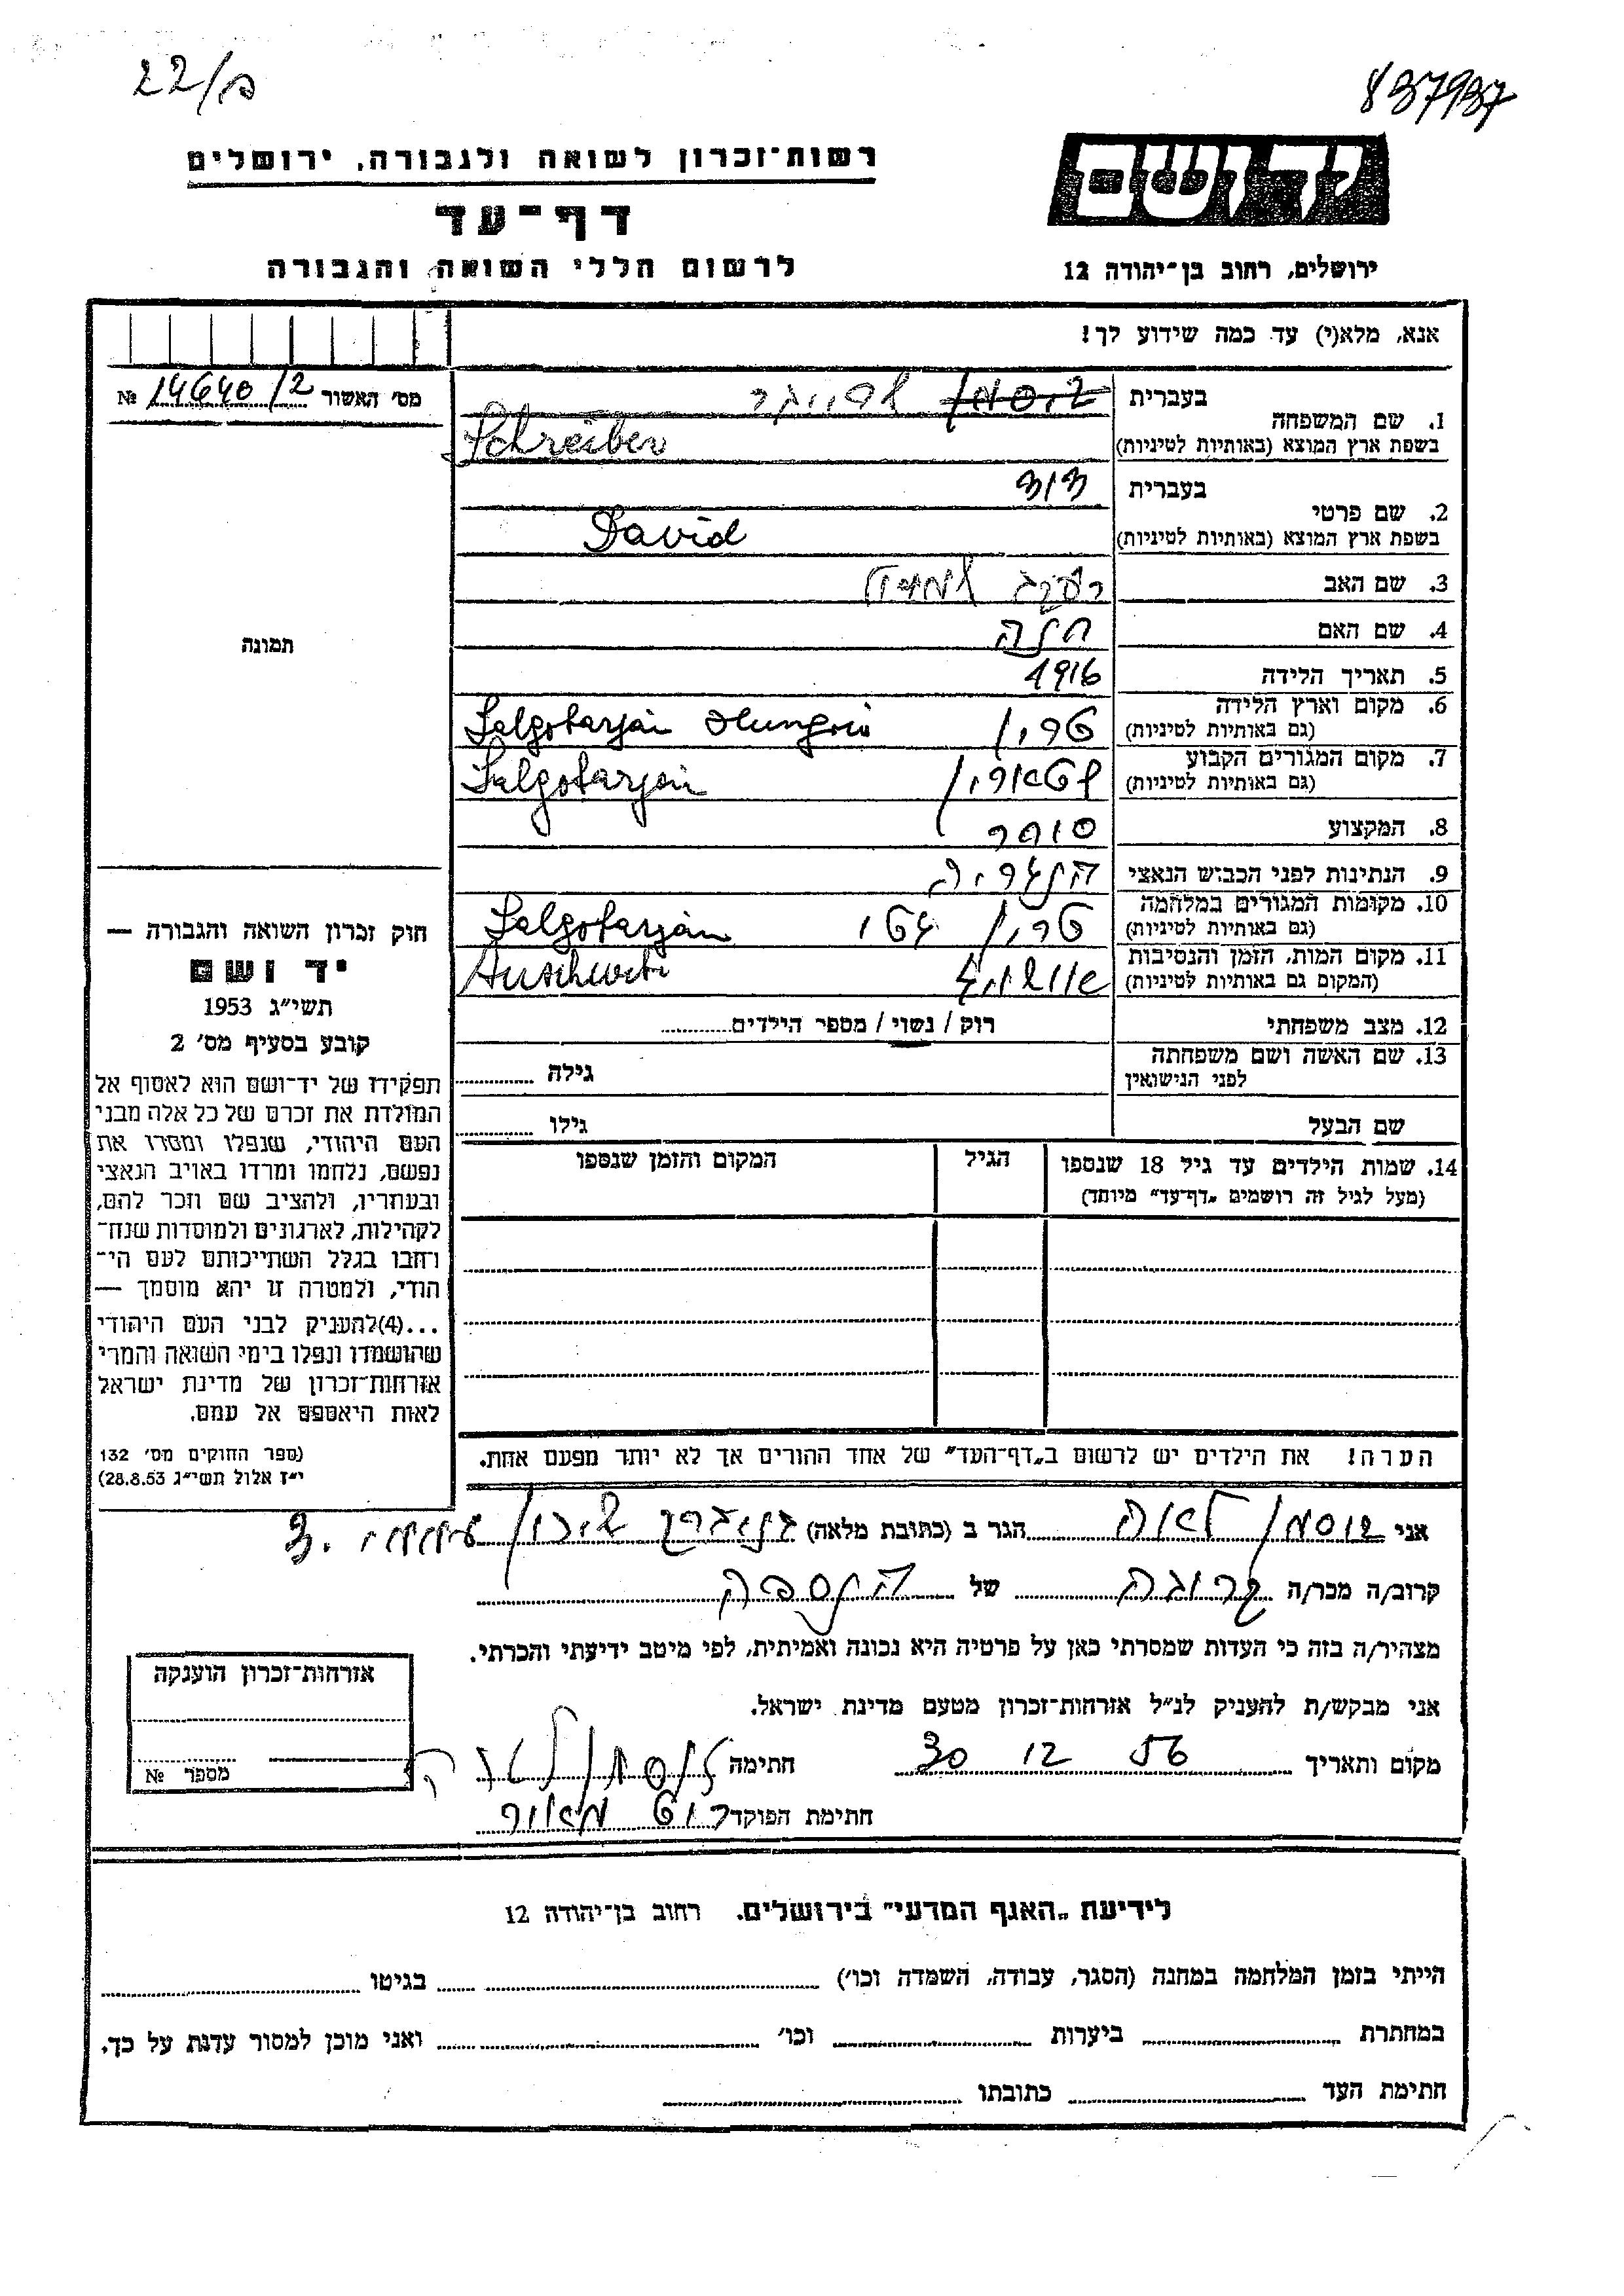 22/ם
837937
רשות־זכרון לשואה ולגבורה, ירושלים
יד ושם
דף־עד
לרשום חללי השואה והגבורה
ירושלים, רחוב בן־יהודה 12
אנא, מלא(י) עד כמה שידוע לך!
מס׳ האשור 14640/2 №
1. שם המשפחה
בעברית שרייבר
בשפת ארץ המוצא (באותיות לטיניות) Schreiber
2. שם פרטי
בעברית דוד
בשפת ארץ המוצא (באותיות לטיניות) David
3. שם האב
4. שם האם
5. תאריך הלידה 1916
6. מקום וארץ הלידה
(גם באותיות לטיניות) טריו Salgotarján
7. מקום המגורים הקבוע
(גם באותיות לטיניות) Salgotarján
8. המקצוע סוחר
9. הנתינות לפני הכבוש הנאצי הונגריה
10. מקומות המגורים במלחמה
(גם באותיות לטיניות) Salgotarján
11. מקום המות, הזמן והנסיבות
(המקום גם באותיות לטיניות) אושויץ Auschwitz
12. מצב משפחתי רוק / נשוי / מספר הילדים
13. שם האשה ושם משפחתה
לפני הנישואין גילה
שם הבעל גילו
14. שמות הילדים עד גיל 18 שנספו
(מעל לגיל זה רושמים „דף־עד” מיוחד)
הגיל
המקום והזמן שנספו
הערה! את הילדים יש לרשום ב„דף־העד” של אחד ההורים אך לא יותר מפעם אחת.
תמונה
חוק זכרון השואה והגבורה —
יד ושם
תשי״ג 1953
קובע בסעיף מס׳ 2
תפקידו של יד־ושם הוא לאסוף אל
המולדת את זכרם של כל אלה מבני
העם היהודי, שנפלו ומסרו את
נפשם, נלחמו ומרדו באויב הנאצי
ובעוזריו, ולהציב שם וזכר להם,
לקהילות, לארגונים ולמוסדות שנח־
רחבו בגלל השתייכותם לעם הי־
הודי, ולמטרה זו יהא מוסמך —
...(4)להעניק לבני העם היהודי
שהושמדו ונפלו בימי השואה והמרי
אזרחות־זכרון של מדינת ישראל
לאות היאספם אל עמם.
(ספר החוקים מס׳ 132
י״ז אלול תשי״ג 28.8.53)
אני לאה הגר ב (כתובת מלאה) שיכון
קרוב/ה מכר/ה קרובה של הנספה
מצהיר/ה בזה כי העדות שמסרתי כאן על פרטיה היא נכונה ואמיתית, לפי מיטב ידיעתי והכרתי.
אני מבקש/ת להעניק לנ״ל אזרחות־זכרון מטעם מדינת ישראל.
מקום ותאריך 30 12 56 חתימה
חתימת הפוקד
אזרחות־זכרון הוענקה
מספר №
לידיעת „האגף המדעי” בירושלים. רחוב בן־יהודה 12
הייתי בזמן המלחמה במחנה (הסגר, עבודה, השמדה וכו׳) בגיטו
במחתרת ביערות וכו׳ ואני מוכן למסור עדות על כך.
חתימת העד כתובתו